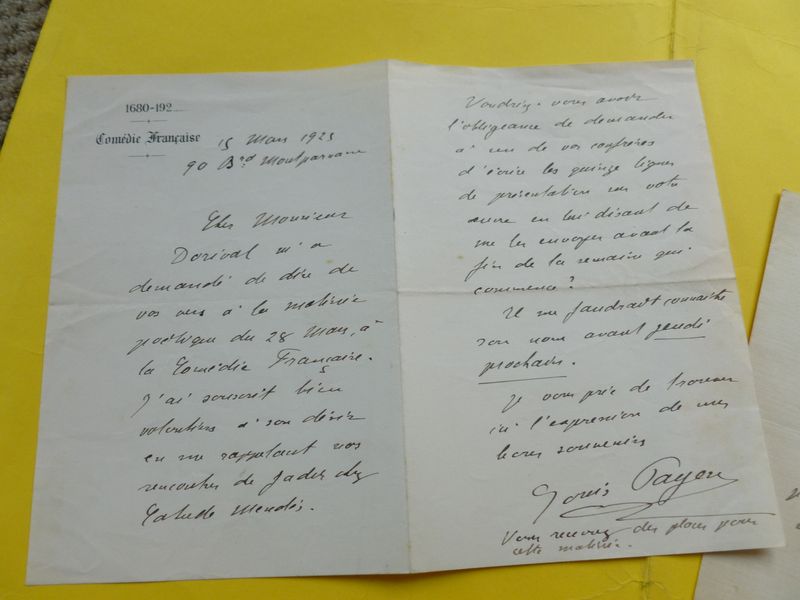 1680-192
Comédie Française
15 Mars 1925
90 Bd Montparnasse
Cher Monsieur
Dorival m'a
demandé de dire de
vos vers à la matinée
poétique du 28 Mars, à
la Comédie Française.
J'ai souscrit bien
volontiers à son désir
en me rappelant nos
rencontres de jadis chez
Catulle Mendès.
Voudriez-vous avoir
l'obligeance de demander
à un de vos confrères
d'écrire les quinze lignes
de présentation sur votre
œuvre en lui disant de
me les envoyer avant la
fin de la semaine qui
commence ?
Il me faudrait connaître
son nom avant jeudi
prochain.
Je vous prie de trouver
ici l'expression de mes
bons souvenirs
Louis Payen
Vous recevrez des places pour
cette matinée.